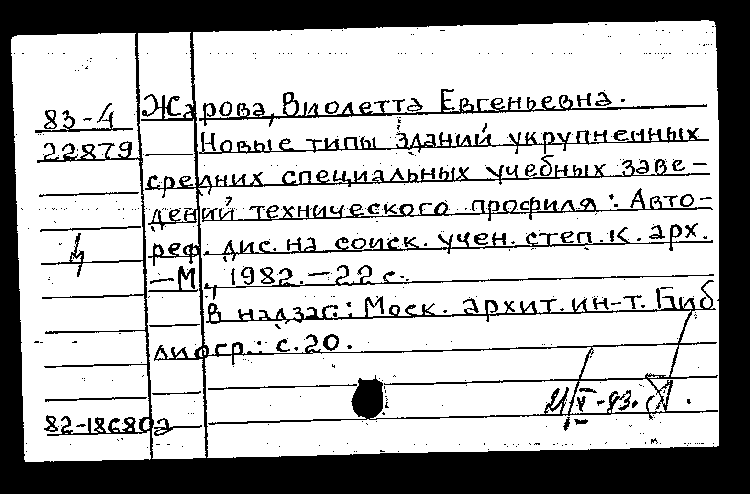 83-4 Жарова, Виолетта Евгеньевна.
22879 Новые типы зданий укрупненных
средних специальных учебных заве-
дений технического профиля : Авто-
реф. дис. на соиск. учен. степ. к. арх.
—М., 1982.—22 с.
В надзаг.: Моск. архит. ин-т. Биб-
лиогр.: с. 20.
82-18680а